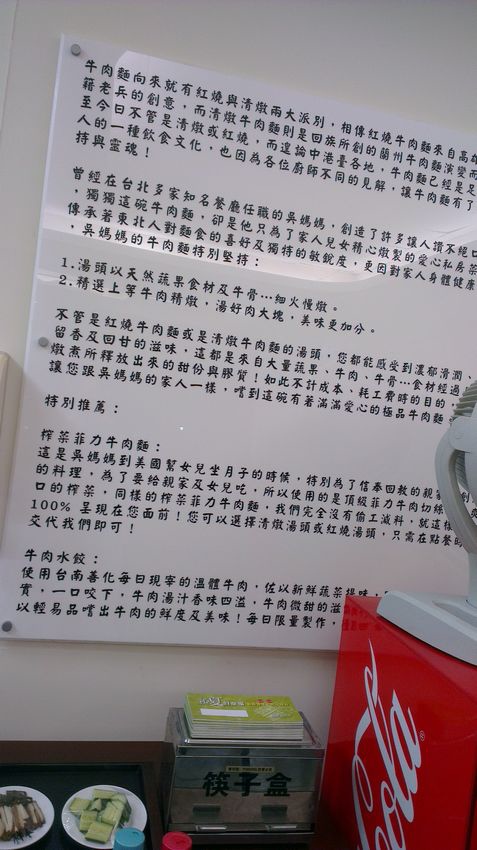 牛肉麵向來就有紅燒與清燉兩大派別，相傳紅燒牛肉麵來自高雄
籍老兵的創意，而清燉牛肉麵則是回族所創的蘭州牛肉麵演變而
至今日不管是清燉或紅燒，而遑論中港臺各地，牛肉麵已經是足
人的一種飲食文化，也因為各位廚師不同的見解，讓牛肉麵有了
持與靈魂！
曾經在台北多家知名餐廳任職的吳媽媽，創造了許多讓人讚不絕口
，獨獨這碗牛肉麵，卻是他只為了家人兒女精心燉製的愛心私房菜
傳承著東北人對麵食的喜好及獨特的敏銳度，更因對家人身體健康
，吳媽媽的牛肉麵特別堅持：
1.湯頭以天然蔬果食材及牛骨…細火慢燉。
2.精選上等牛肉精燉，湯好肉大塊，美味更加分。
不管是紅燒牛肉麵或是清燉牛肉麵的湯頭，您都能感受到濃郁滑潤、
留香及回甘的滋味，這都是來自大量蔬果、牛肉、牛骨…食材經過
燉煮所釋放出來的甜份與膠質！如此不計成本、耗工費時的目的，
讓您跟吳媽媽的家人一樣，嚐到這碗有著滿滿愛心的極品牛肉麵
特別推薦：
榨菜菲力牛肉麵：
這是吳媽媽到美國幫女兒坐月子的時候，特別為了信奉回教的親家
的料理，為了要給親家及女兒吃，所以使用的是頂級菲力牛肉切絲
口的榨菜，同樣的榨菜菲力牛肉麵，我們完全沒有偷工減料，就這樣
100% 呈現在您面前！您可以選擇清燉湯頭或紅燒湯頭，只需在點餐時
交代我們即可！
牛肉水餃：
使用台南善化每日現宰的溫體牛肉，佐以新鮮蔬菜提味，
實，一口咬下，牛肉湯汁香味四溢，牛肉微甜的滋
以輕易品嚐出牛肉的鮮度及美味！每日限量製作，
筷子盒
Cola